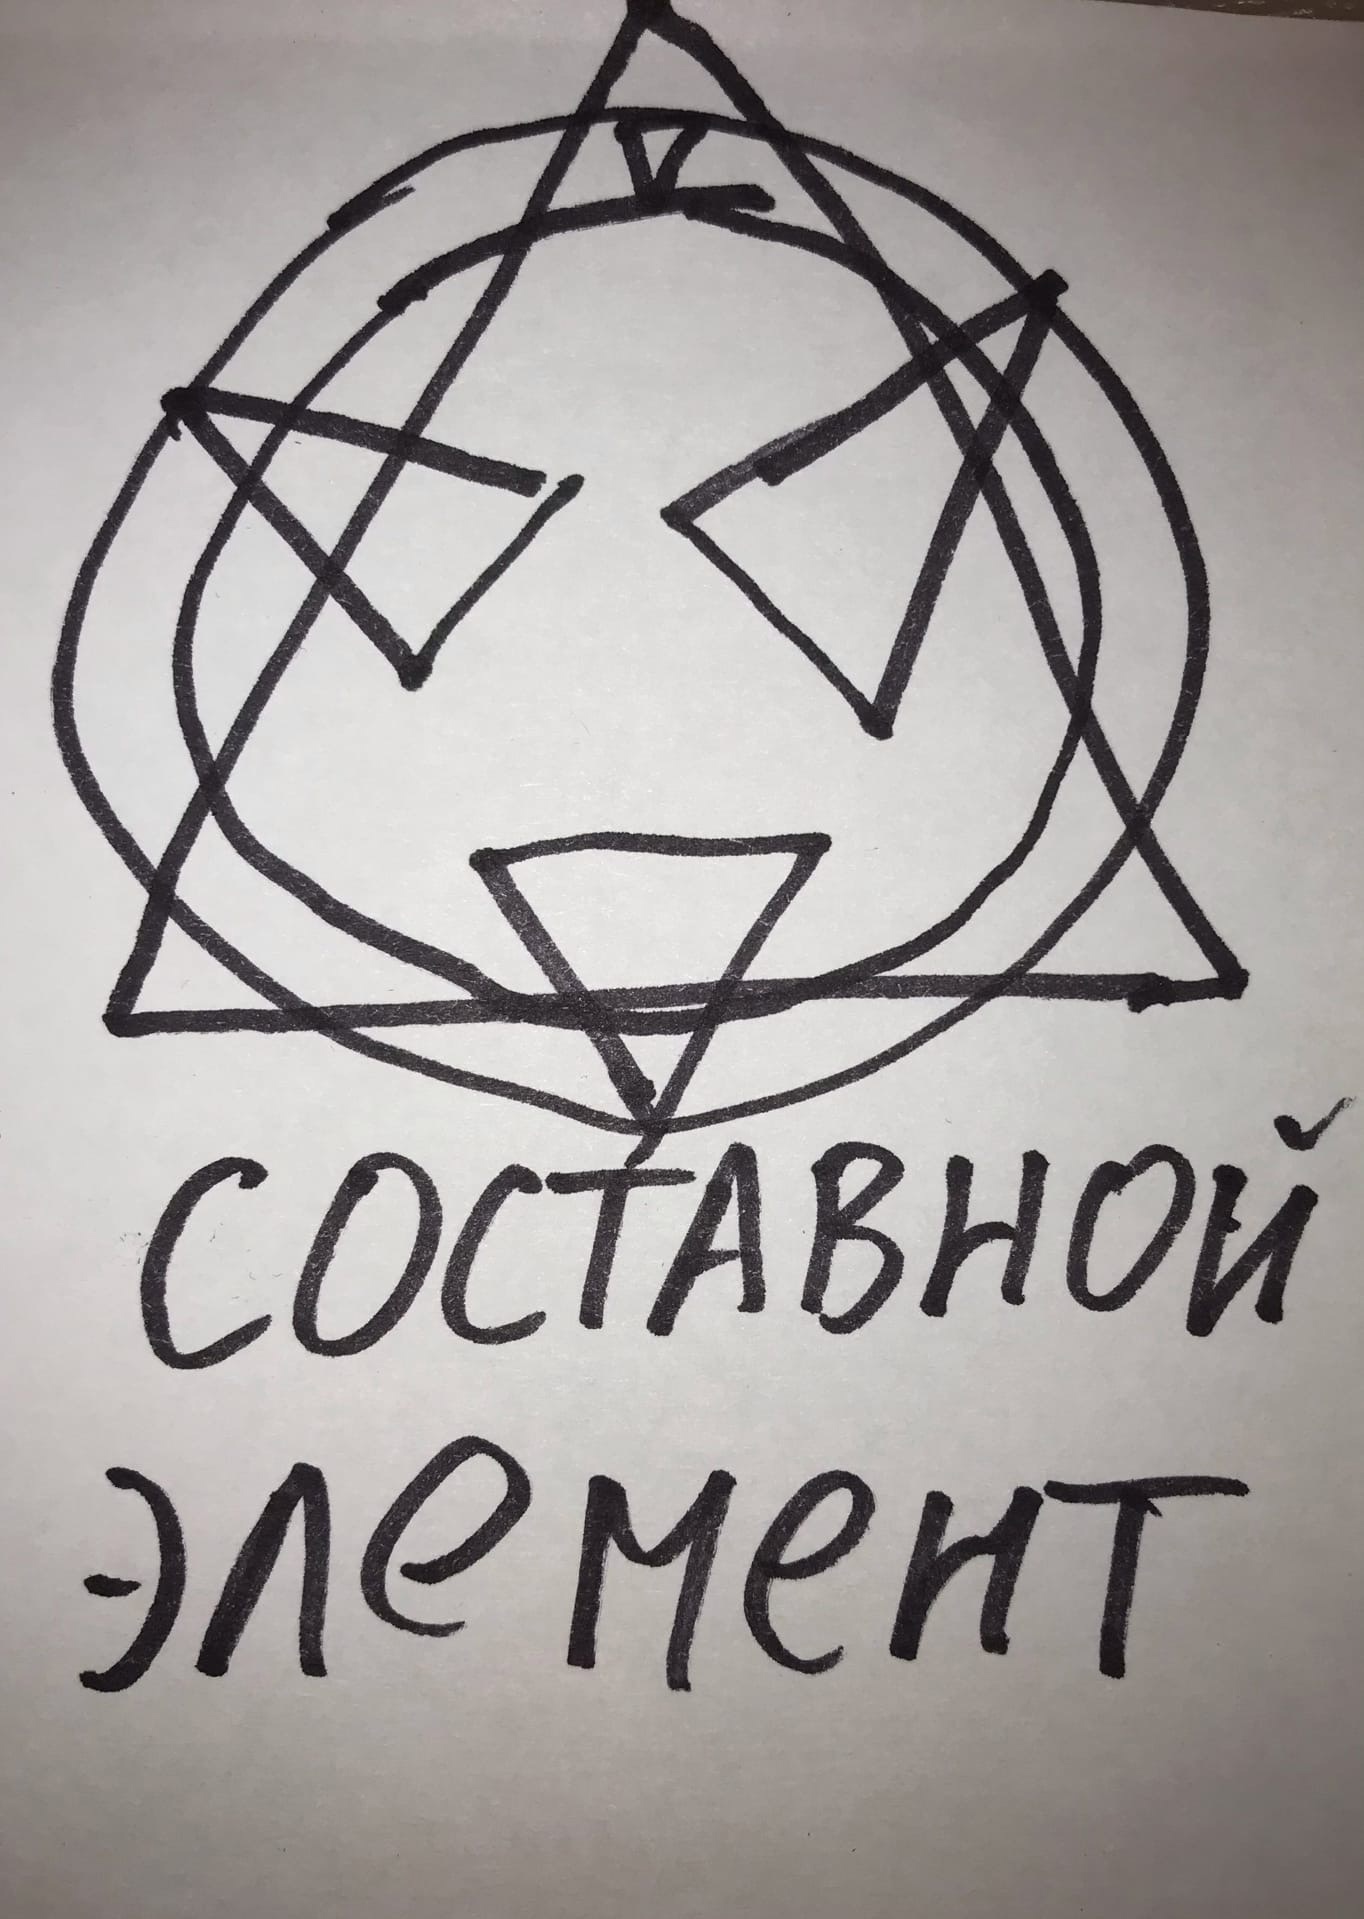 СОСТАВНОЙ
ЭЛеМеНТ